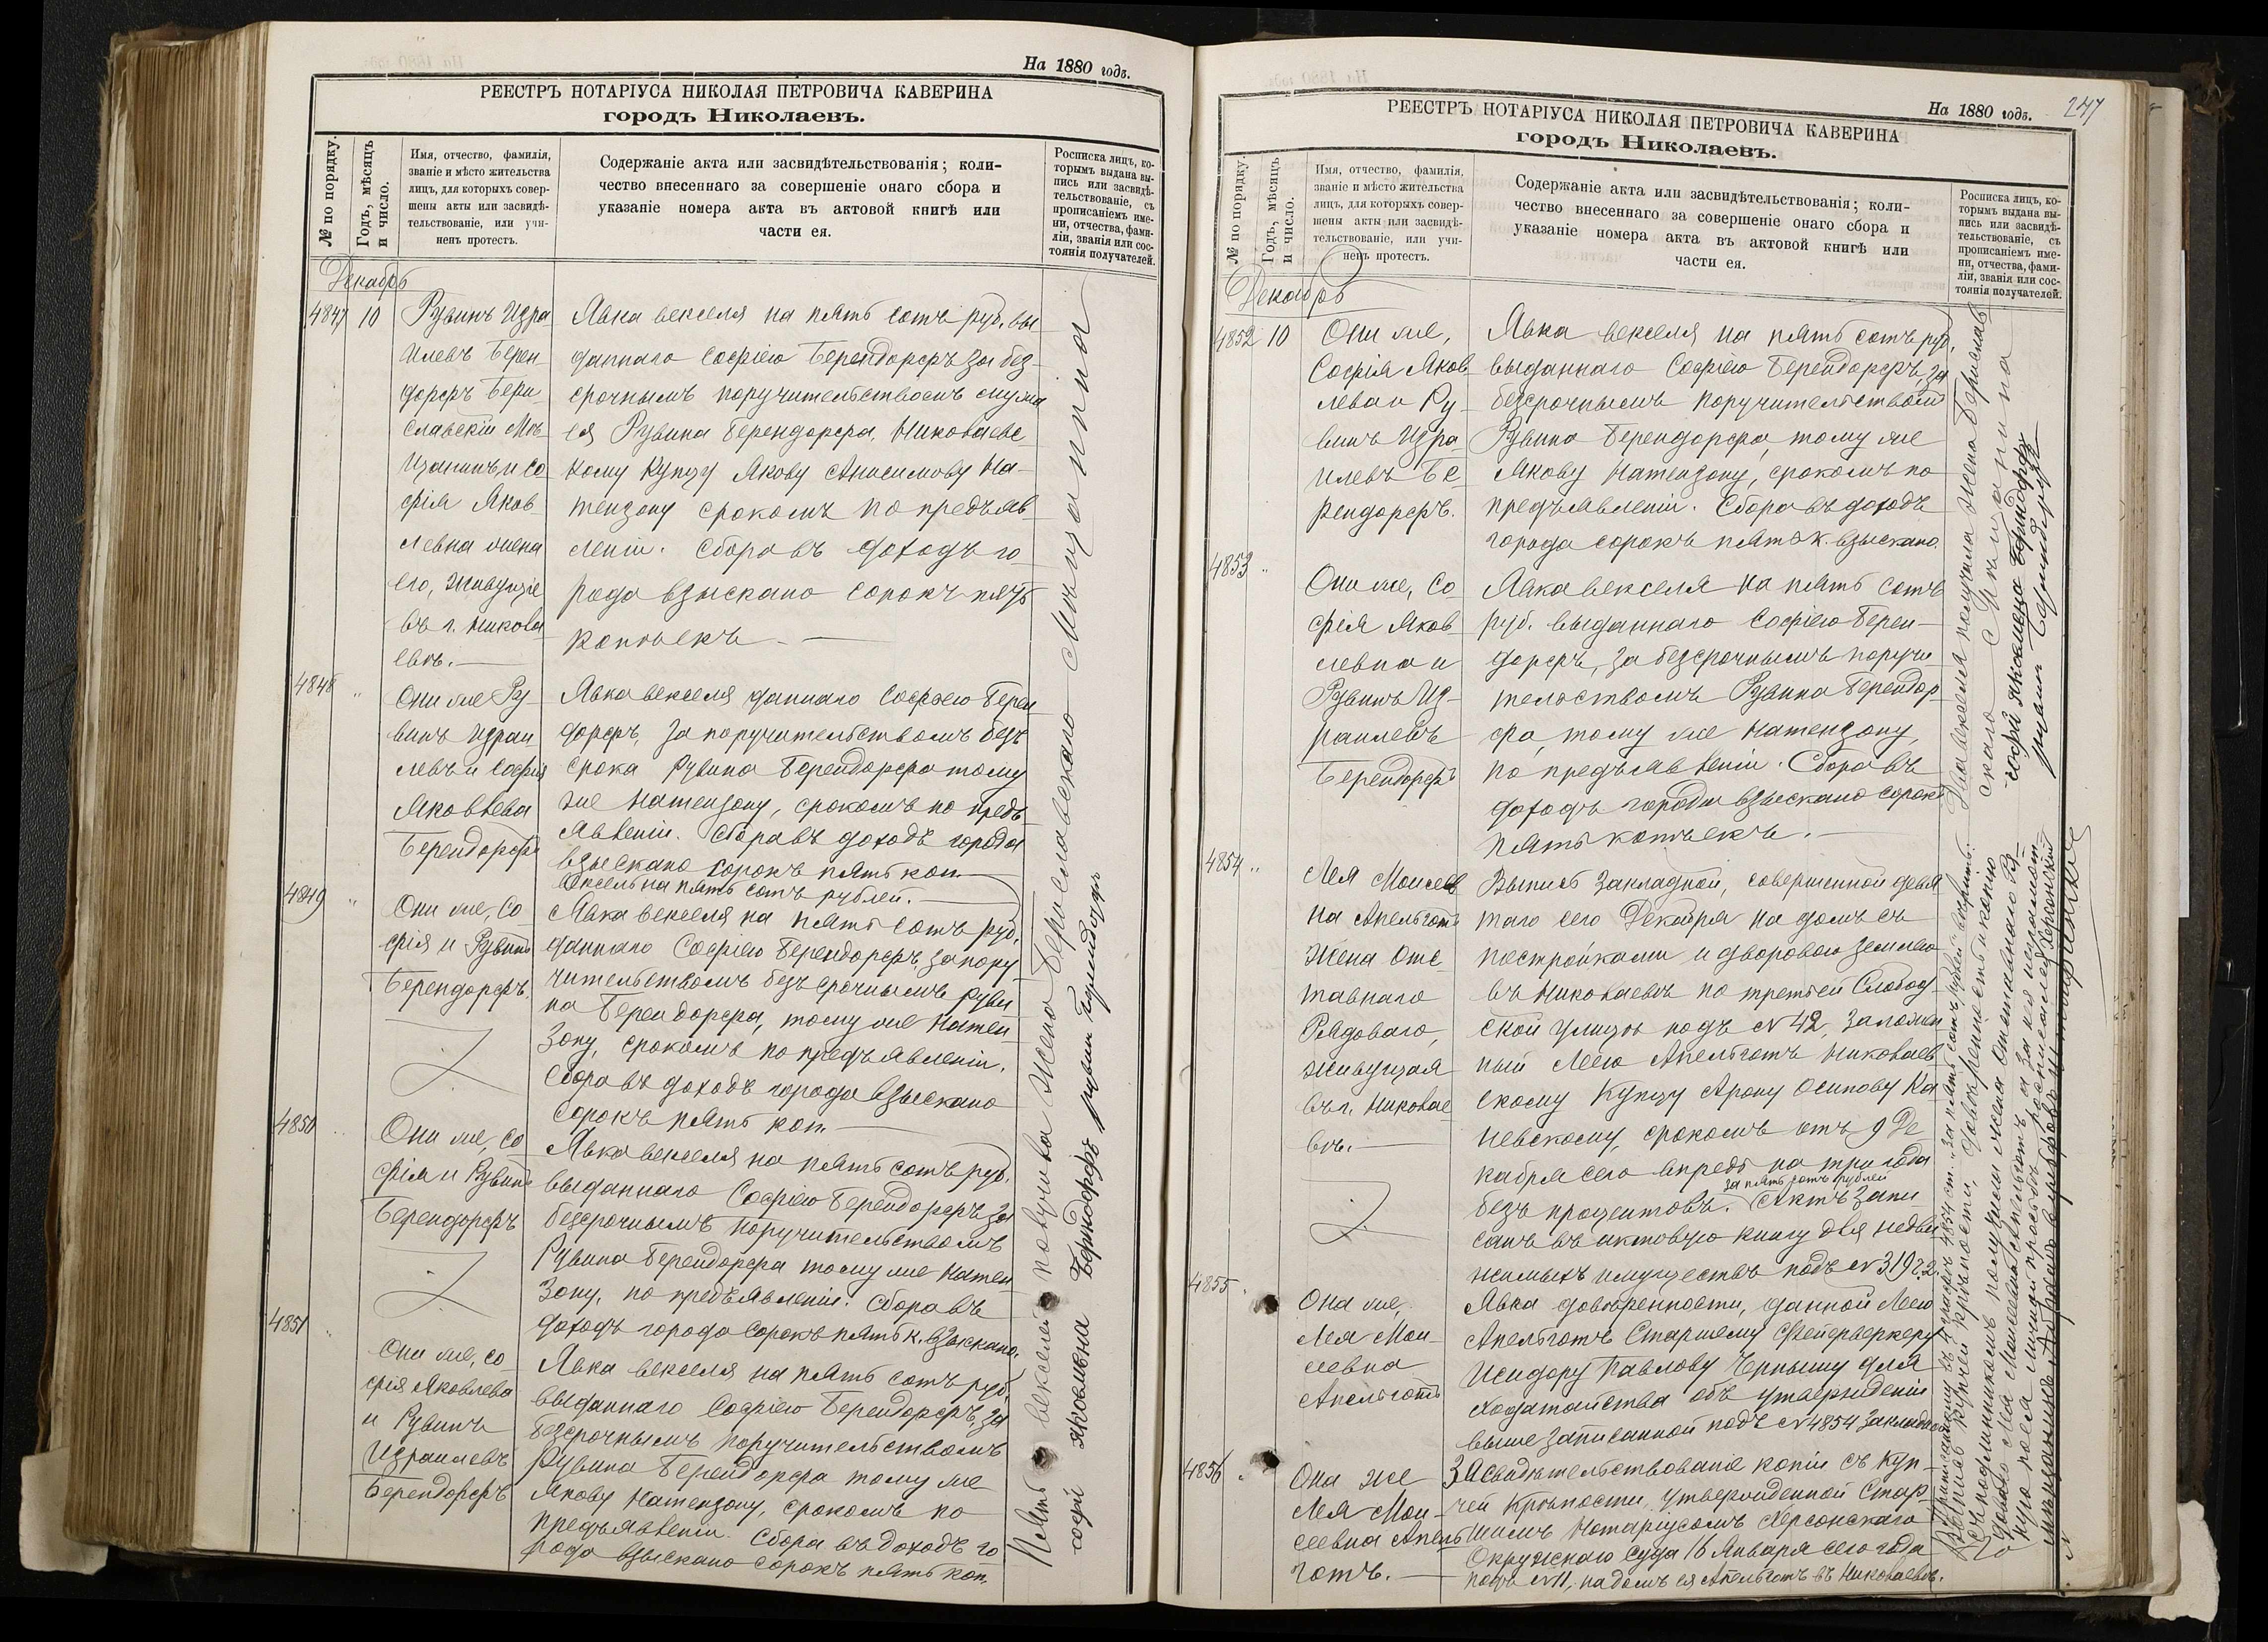 На 1880 годъ.
РЕЕСТРЪ НОТАРІУСА НИКОЛАЯ ПЕТРОВИЧА КАВЕРИНА
городъ Николаевъ.
№ по порядку.
Годъ, мѣсяцъ
и число.
Имя, отчество, фамилія,
званіе и мѣсто жительства
лицъ, для которыхъ совер-
шены акты или засвидѣ-
тельствованіе, или учи-
ненъ протестъ.
Содержаніе акта или засвидѣтельствованія; коли-
чество внесеннаго за совершеніе онаго сбора и
указаніе номера акта въ актовой книгѣ или
части ея.
Росписка лицъ, ко-
торымъ выдана вы-
пись или засвидѣ-
тельствованіе, съ
прописаніемъ име-
ни, отчества, фами-
ліи, званія или сос-
тоянія получателей.
Декабрь
4847 10
Рувинъ Изра
илевъ Берен
дорфъ Бери
славскій Мѣ
щанинъ и Со
фія Яков
левна жена
его, живущіе
въ г. Никола
евѣ.
Явка векселя на пять сотъ руб. вы
даннаго Софіею Берендорфъ за без-
срочнымъ поручительствомъ мужа
ея Рувина Берендорфа, Николаевс
кому купцу Якову Анисимову На-
тензону срокомъ по предъяв
леніи. Сбора въ доходъ го
рода взыскано сорокъ пять
копѣекъ
4848 "
Они же Ру
винъ Израи
левъ и Софія
Яковлева
Берендорфъ
Явка векселя даннаго Софіею Берен
дорфъ, за поручительствомъ безъ
срока Рувина Берендорфа тому
же Натензону, срокомъ по предъ
явленіи. Сбора въ доходъ города
взыскано сорокъ пять коп.
Вексель на пять сотъ рублей.
4849 "
Они же, Со
фія и Рувинъ
Берендорфъ.
Явка векселя на пять сотъ руб.
даннаго Софіею Берендорфъ, за пору
чительствомъ безъ срочнымъ Руви
на Берендорфа, тому же Натен
зону, срокомъ по предъявленіи.
Сбора въ доходъ города взыскано
сорокъ пять коп.
4850 "
Они же, Со
фія и Рувинъ
Берендорфъ
Явка векселя на пять сотъ руб.
выданнаго Софіею Берендорфъ за
безсрочнымъ поручительствомъ
Рувина Берендорфа тому же Натен
зону, по предъявленіи. Сбора въ
доходъ города сорокъ пять к. взыскано.
4851 "
Они же, Со
фія Яковлева
и Рувинъ
Израилевъ
Берендорфъ
Явка векселя на пять сотъ руб.
выданнаго Софіею Берендорфъ, за
безсрочнымъ поручительствомъ
Рувина Берендорфа тому же
Якову Натензону, срокомъ по
предъявленіи. Сбора въ доходъ го
рода взыскано сорокъ пять коп.
Пять векселей получила жена Бериславскаго Мѣщанина
софей яковлевна Бериндорфъ рувин Бериндорфъ
На 1880 годъ.
247
РЕЕСТРЪ НОТАРІУСА НИКОЛАЯ ПЕТРОВИЧА КАВЕРИНА
городъ Николаевъ.
№ по порядку.
Годъ, мѣсяцъ
и число.
Имя, отчество, фамилія,
званіе и мѣсто жительства
лицъ, для которыхъ совер-
шены акты или засвидѣ-
тельствованіе, или учи-
ненъ протестъ.
Содержаніе акта или засвидѣтельствованія; коли-
чество внесеннаго за совершеніе онаго сбора и
указаніе номера акта въ актовой книгѣ или
части ея.
Росписка лицъ, ко-
торымъ выдана вы-
пись или засвидѣ-
тельствованіе, съ
прописаніемъ име-
ни, отчества, фами-
ліи, званія или сос-
тоянія получателей.
Декабрь
4852 10
Они же,
Софія Яков
лева и Ру-
винъ Изра
илевъ Бе
рендорфъ.
Явка векселя на пять сотъ руб.
выданнаго Софіею Берендорфъ, за
безсрочнымъ поручительствомъ
Рувина Берендорфа, тому же
Якову Натензону, срокомъ по
предъявленіи. Сбора въ доходъ
города сорокъ пять к. взыскано.
4853 "
Они же, Со
фія Яков
левна и
Рувинъ Из-
раилевъ
Берендорфъ
Явка векселя на пять сотъ
руб. выданнаго Софіею Берен-
дорфъ, за безсрочнымъ поручи
тельствомъ Рувина Берендор-
фа, тому же Натензону,
по предъявленіи. Сбора въ
доходъ города взыскано сорокъ
пять копѣекъ.
4854 "
Лея Моисеев
на Апельготъ
жена отс
тавнаго
Рядоваго,
живущая
въ г. Николае
вѣ.
Выпись закладной, совершенной девя
таго сего Декабря на домъ съ
постройками и дворовою землею
въ Николаевѣ по третьей Слобод
ской улицѣ подъ № 42, заложен
ный Леею Апельготъ Николаев
скому купцу Арону Осипову Ка
невскому, срокомъ отъ 9 Де
кабря сего впредь на три года
за пять сотъ рублей
безъ процентовъ. Актъ запи
санъ въ актовую книгу для недви
жимыхъ имуществъ подъ № 319 г. 2.
4855 "
Она же,
Лея Мои-
сеевна
Апельготъ
Явка довѣренности, данной Леею
Апельготъ Старшему Фейерверкеру
Исидору Павлову Чернышу для
ходатайства объ утвержденіи
выше записанной подъ № 4854 закладной
4856 "
Она же
Лея Мои-
сеевна Апель
готъ.
Засвидѣтельствованіе копіи съ куп-
чей крѣпости, утвержденной Стар-
шимъ Нотаріусомъ Херсонскаго
Окружнаго Суда 16 Января сего года
подъ № 11, на домъ ея Апельготъ въ Николаевѣ.
Два векселя получила жена Берислав
скаго Мѣщанина
софей яковлева Бериндорфъ
рувин Бериндорфъ
Выпись купчей крѣпости, довѣренность и копію
съ подлинникомъ получила жена отставнаго Ря-
доваго Лея Моисеевна Апельготъ а за нея неграмот